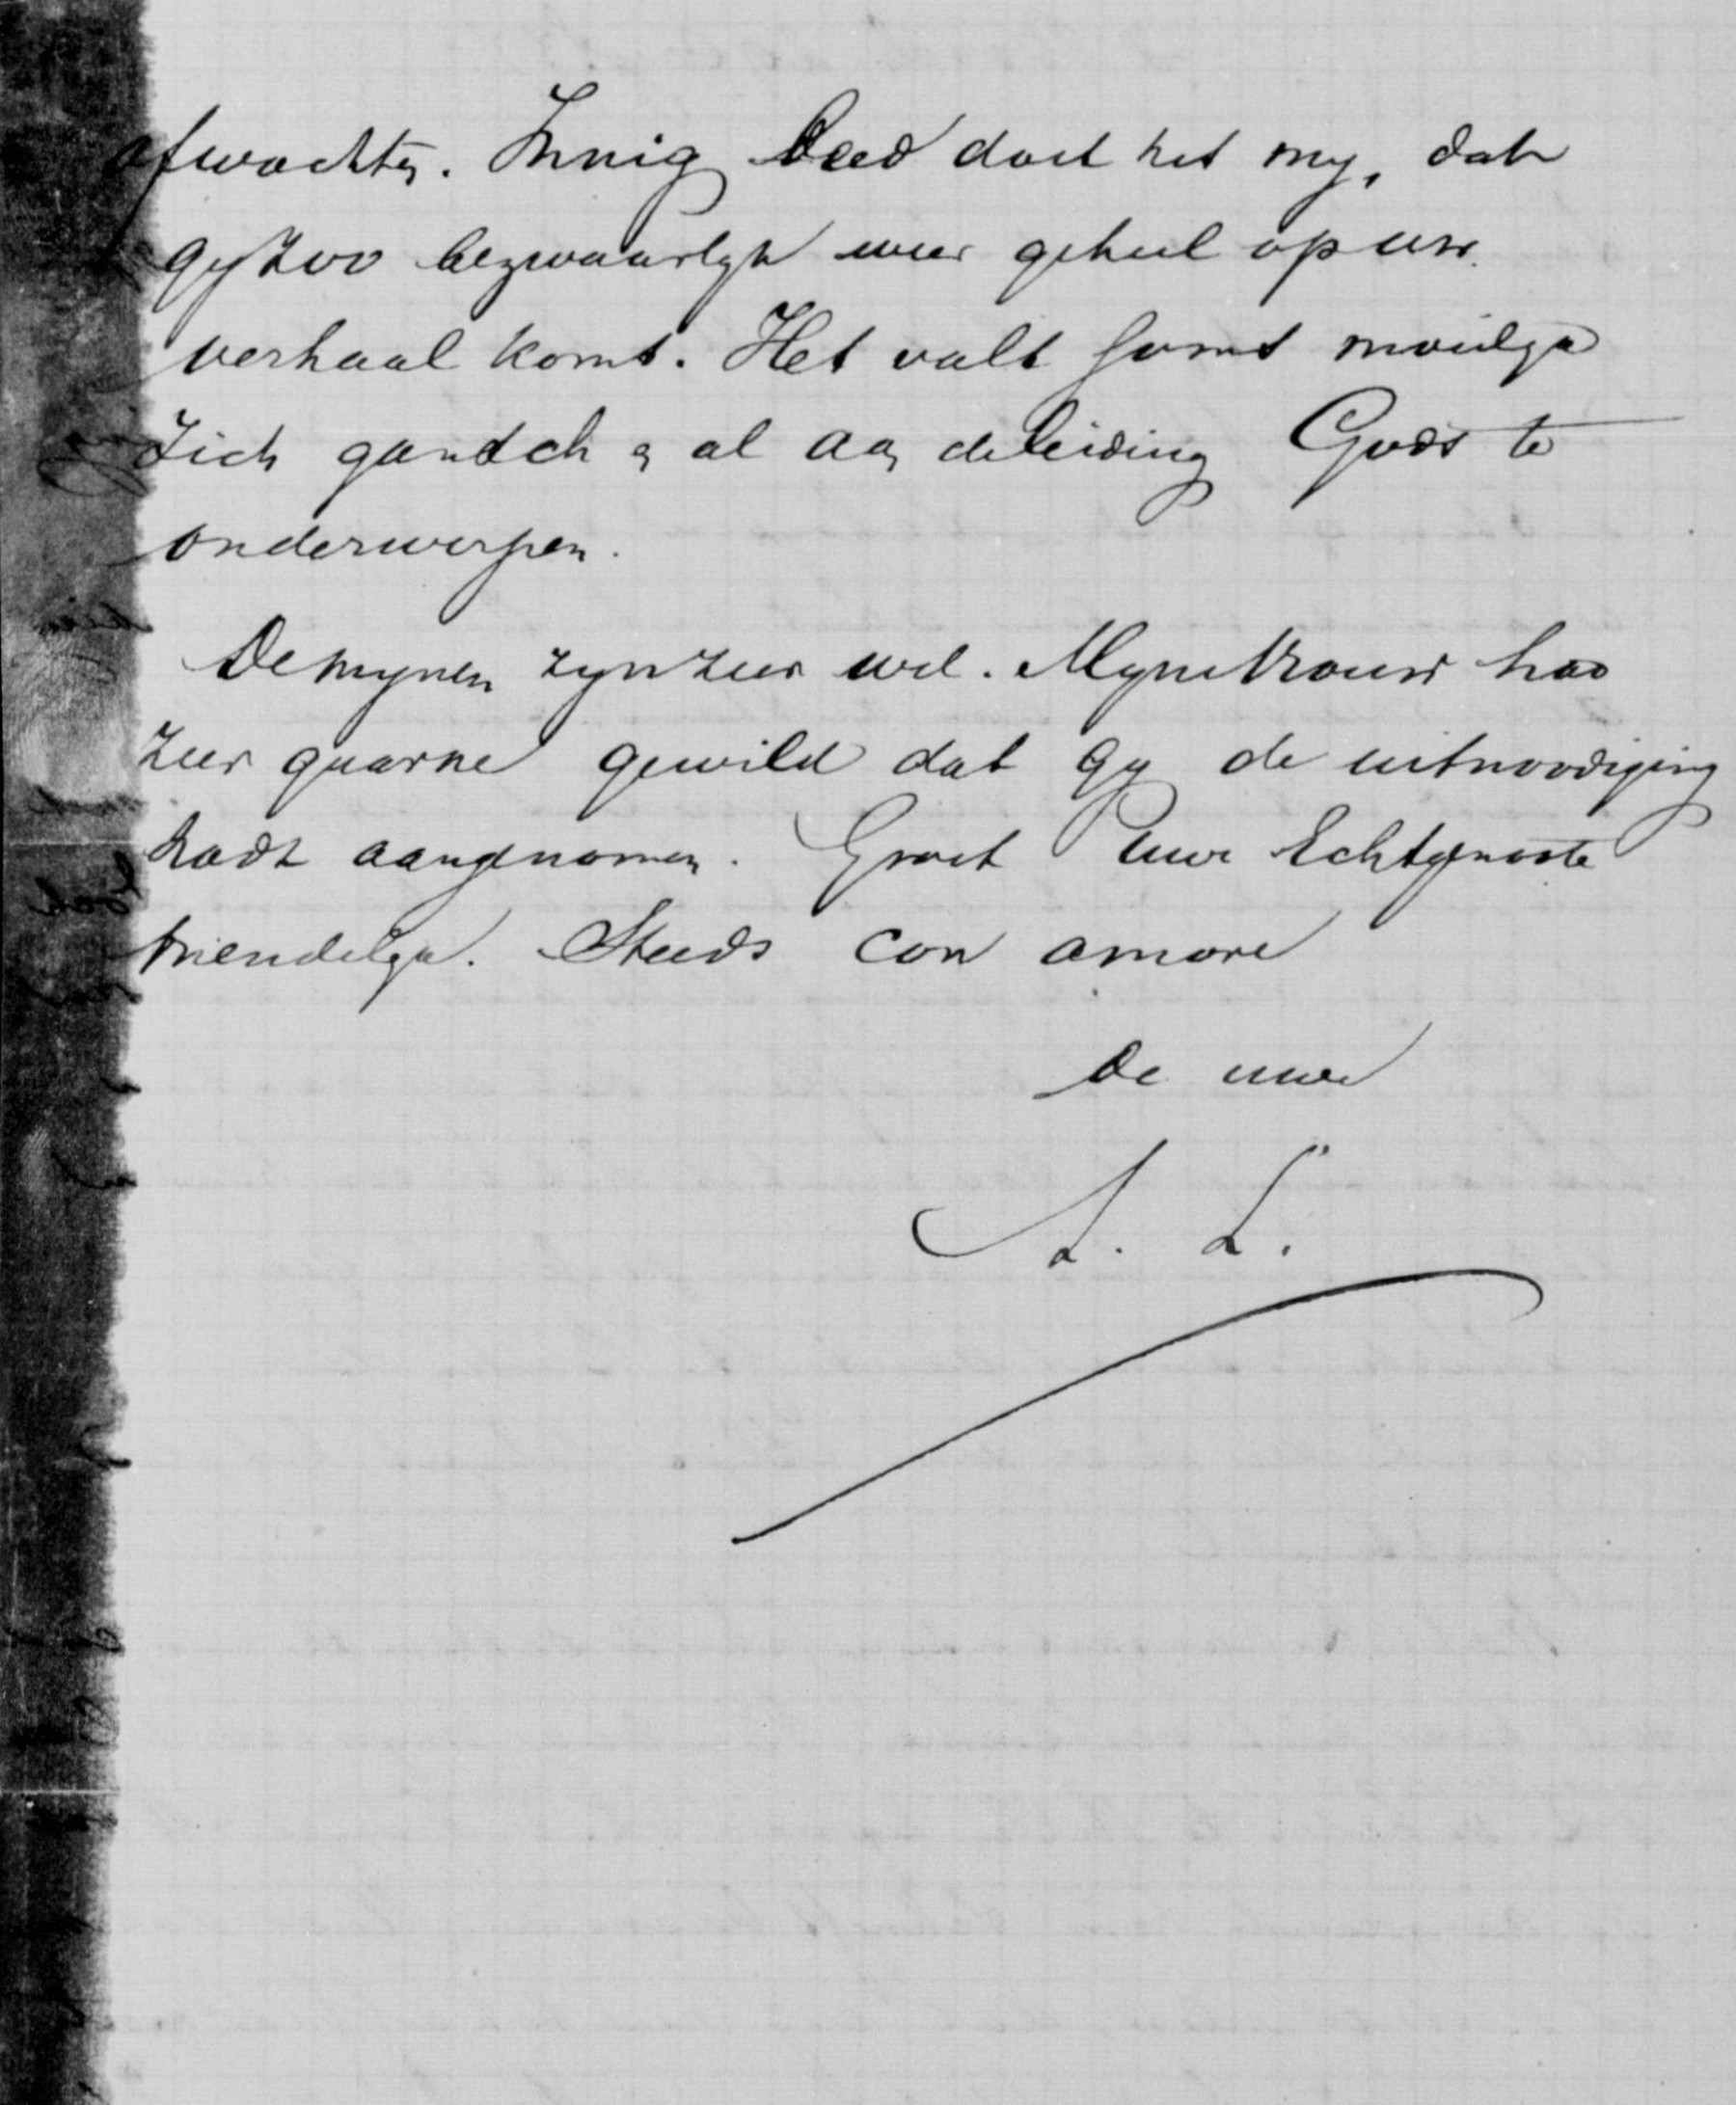 afwachten. Innig leed doet het my, dat
gy zoo bezwaarlyk weer geheel op uw
verhaal komt. Het valt soms moeilyk
zich gansch en al aan de leiding Gods te
onderwerpen.
De mynen zyn zeer wel. Myne Vrouw had
zeer gaarne gewild dat gy de uitnoodiging
hadt aangenomen. Groet uwe Echtgenoote
vriendelyk. Steeds con amore
de uwe
A. L.